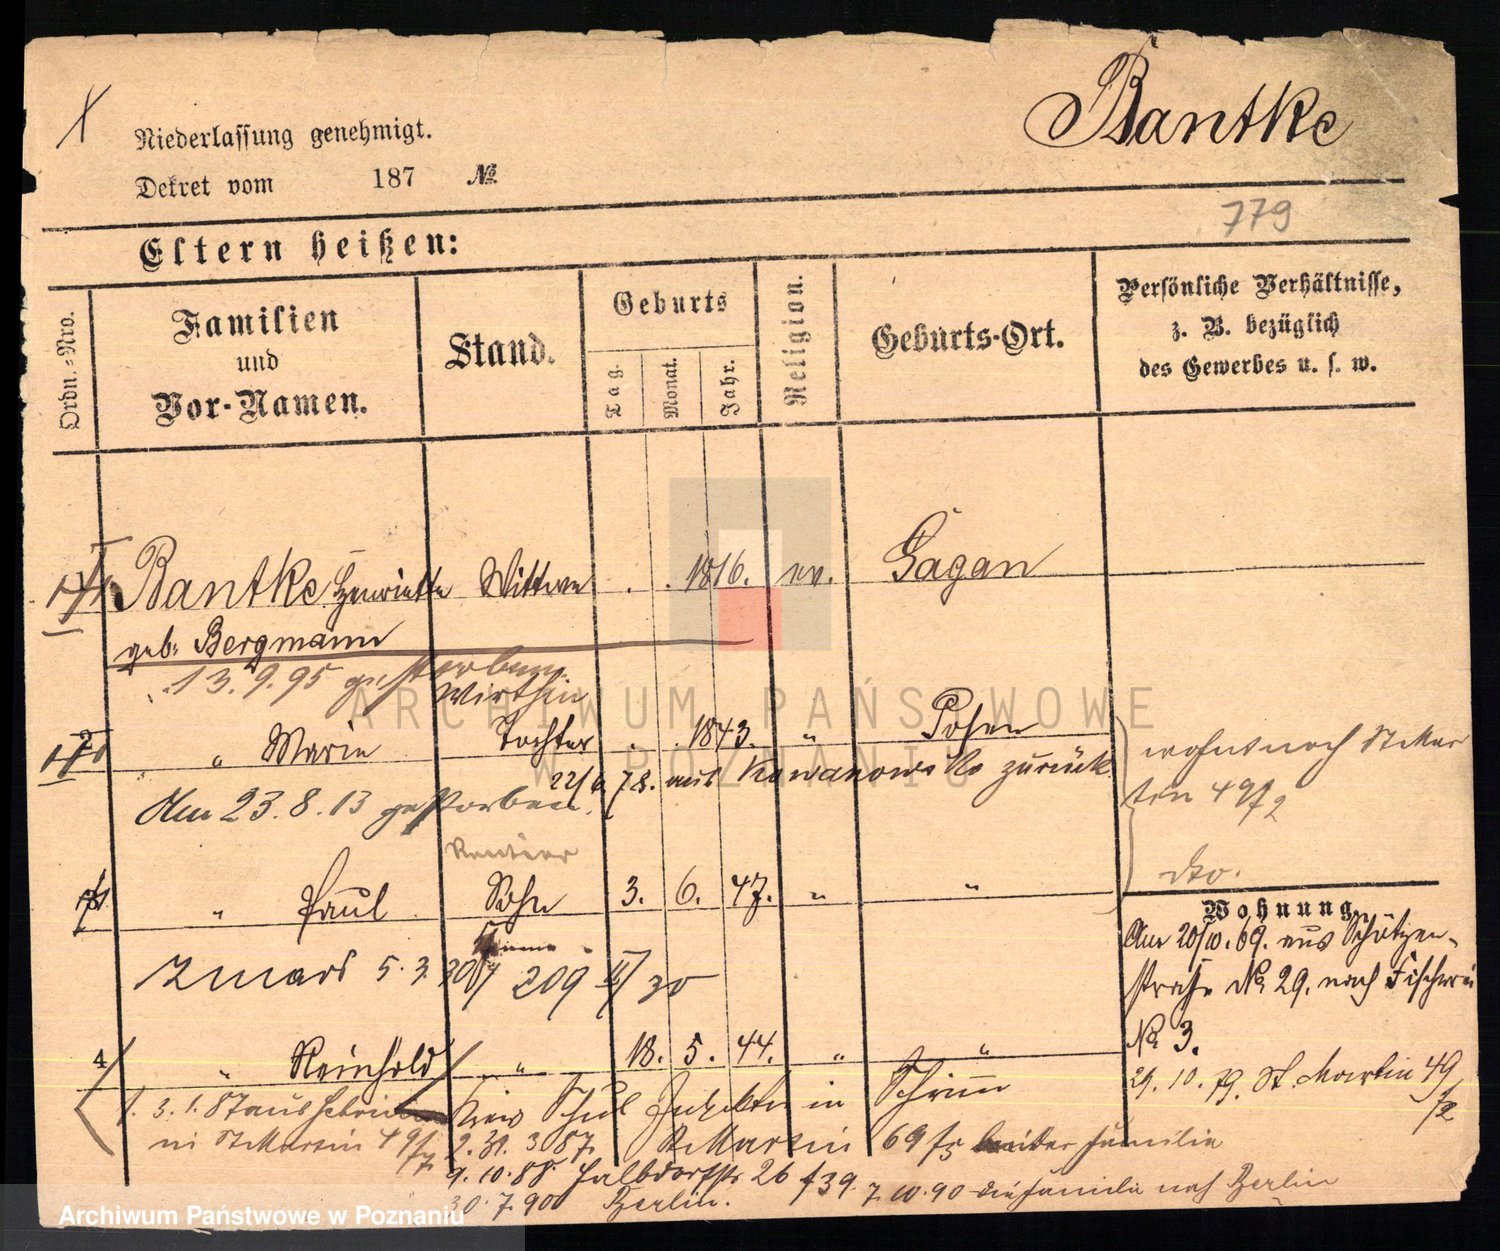 Bantke
Niederlassung genehmigt.
Dekret vom 187 №
779
Eltern heißen:
Ordn.-Nro.
Familien
und
Vor-Namen.
Stand.
Geburts
Tag.
Monat.
Jahr.
Religion.
Geburts-Ort.
Persönliche Verhältnisse,
z. B. bezüglich
des Gewerbes u. s. w.
Bantke Henriette Wittwe . . 1816. ev. Sagan
geb. Bergmann
13.9.95 gestorben
Wirthin
" Marie Tochter . . 1843. " Posen
22/6 78. aus Kowanowsko zurück
Am 23.8.13 gestorben.
wohnt noch St Mar
tin 49/2
dto.
Rentier
" Paul Sohn 3. 6. 47. " "
5.3.30 209 II/30
Wohnung.
Am 20/10.69. aus Schützen-
straße No 29. nach Fischerei
No 3.
29.10.79. St. Martin 49/2
4 " Reinhold " 18. 5. 44. " "
Kreis Schul Inspektor in Schrimm
in St Martin 49/2 2.31.3.87. St Martin 69 Familie
9.10.88. Halbdorfstr 26 39. 7.10.90 die Familie nach Berlin
30.7.900 Berlin.
ARCHIWUM PAŃSTWOWE
W POZNANIU
Archiwum Państwowe w Poznaniu